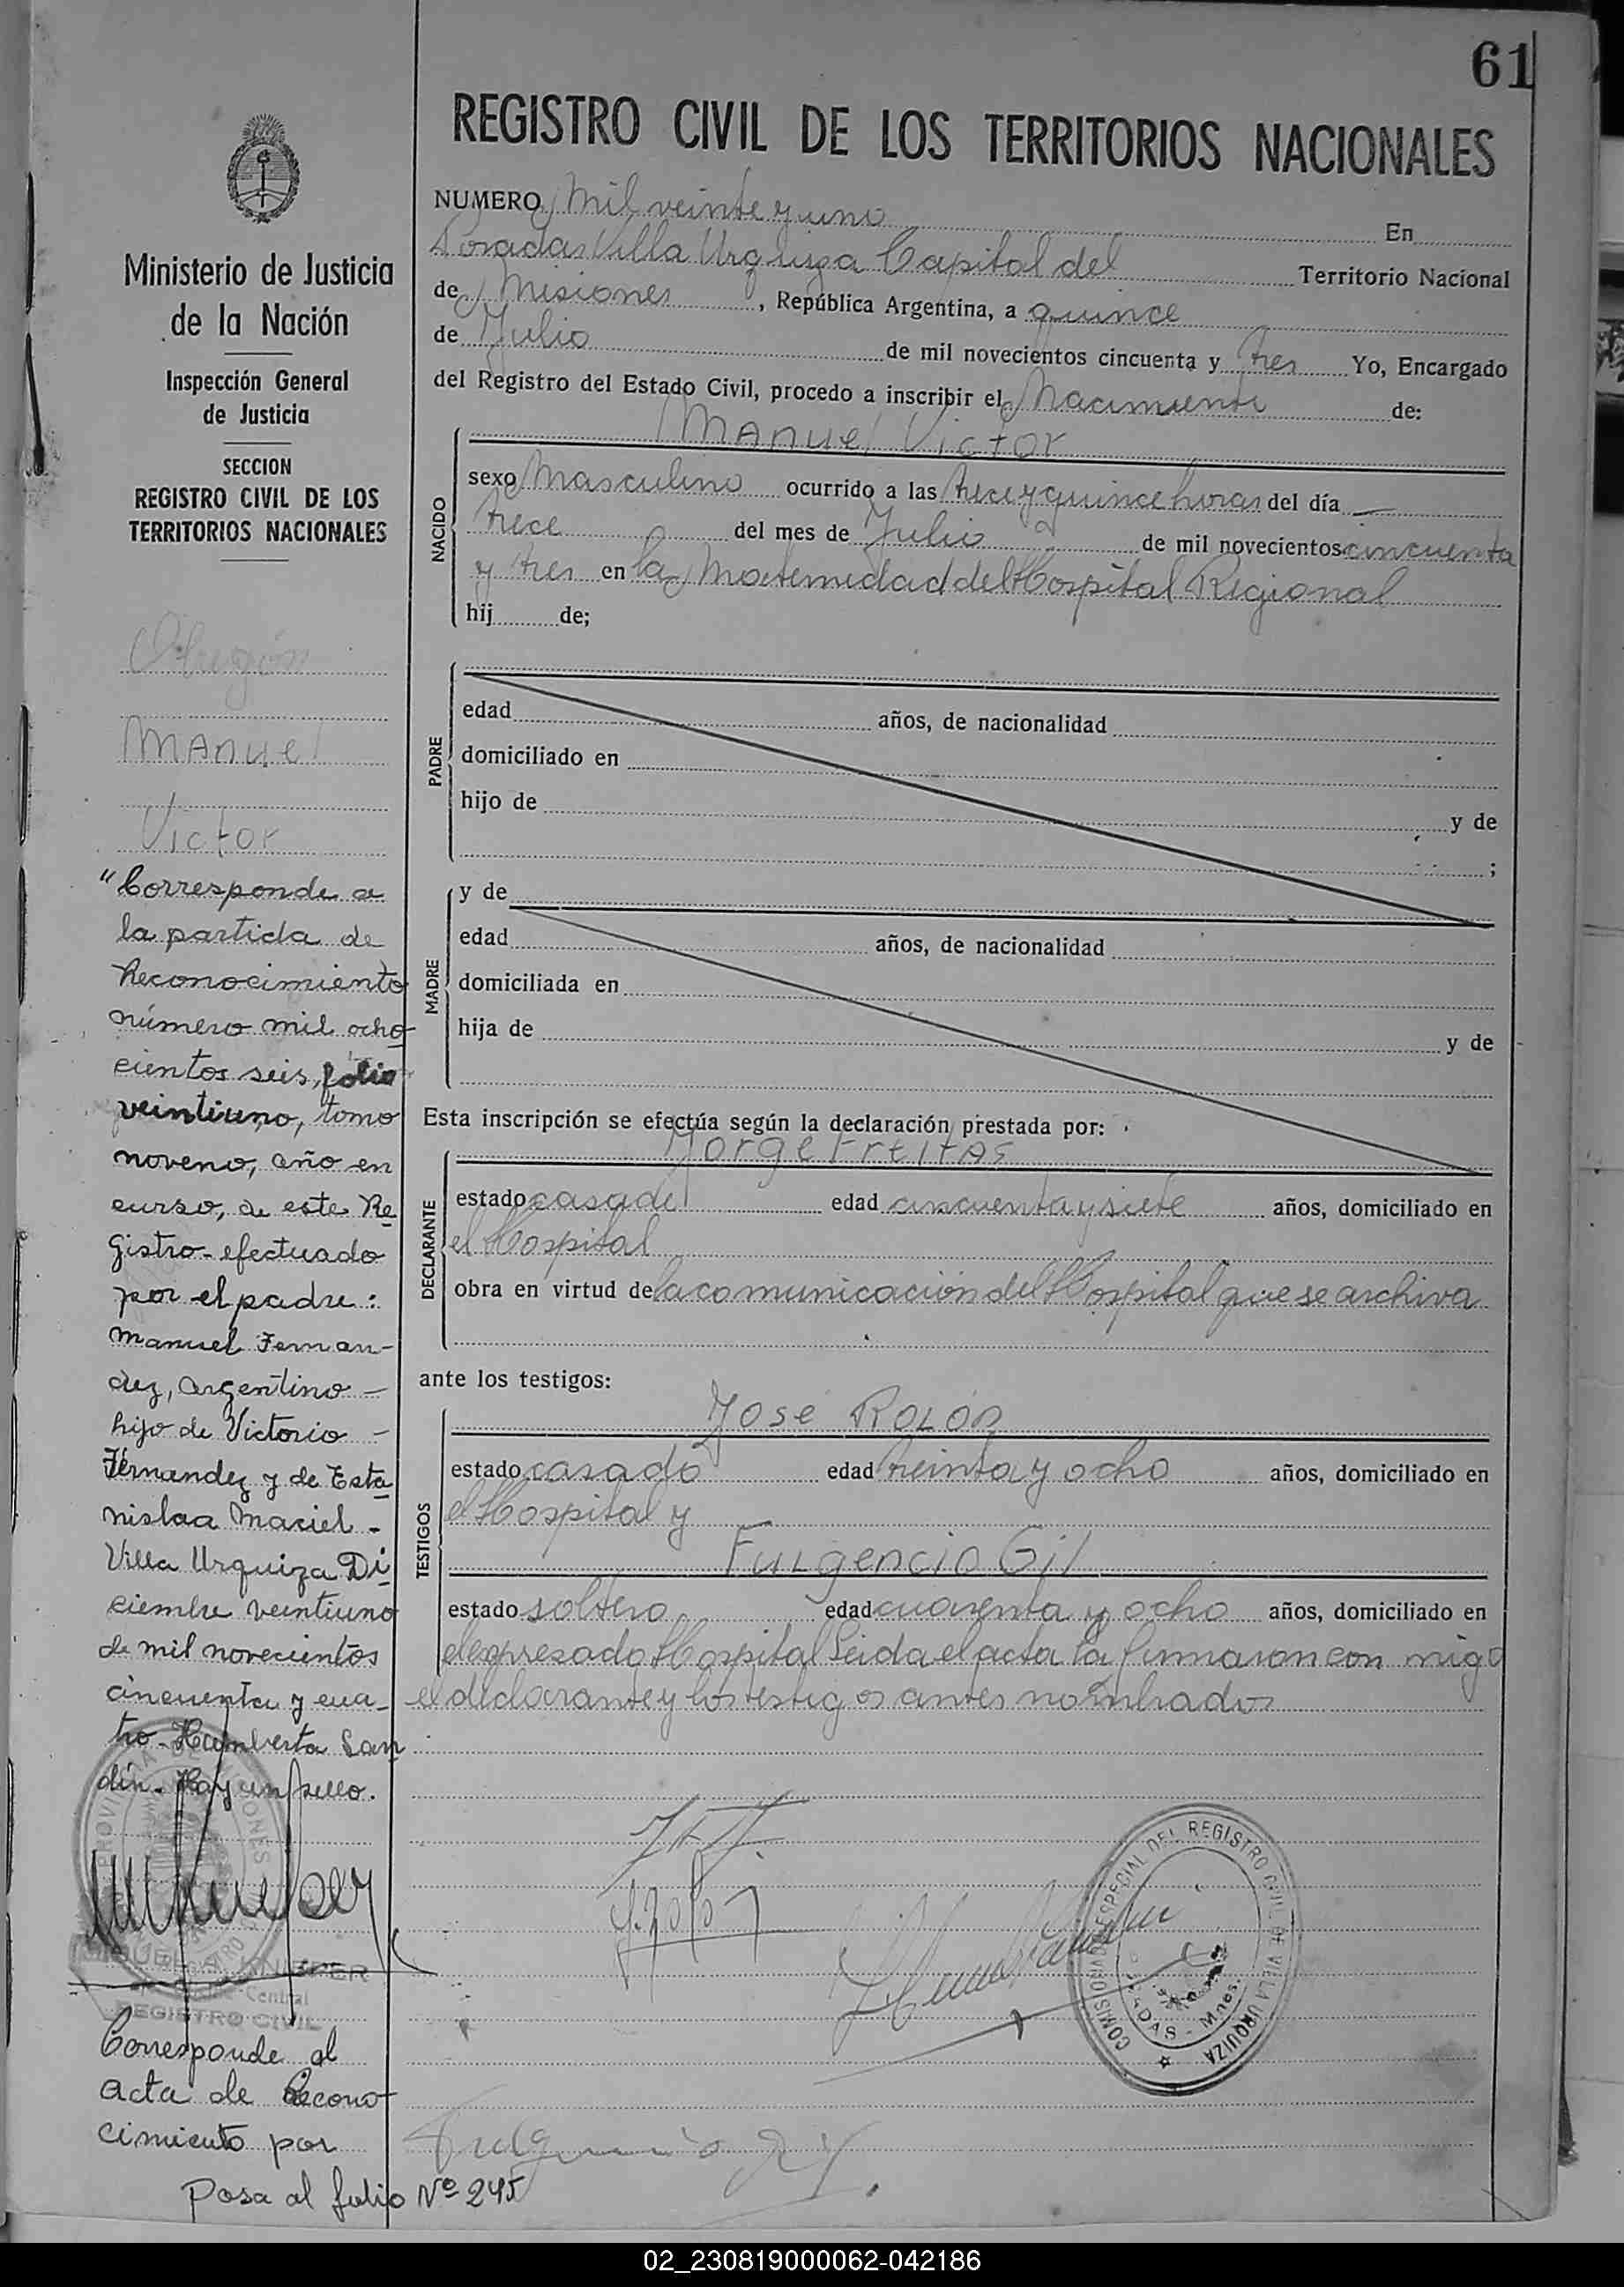 61
REGISTRO CIVIL DE LOS TERRITORIOS NACIONALES
NUMERO Mil veinte y uno En
Posadas Villa Urquiza Capital del Territorio Nacional
de Misiones, República Argentina, a quince
de Julio de mil novecientos cincuenta y tres Yo, Encargado
del Registro del Estado Civil, procedo a inscribir el Nacimiento de:
Manuel Victor
NACIDO
sexo Masculino ocurrido a las trece y quince horas del día —
trece del mes de Julio de mil novecientos cincuenta
y tres en la Maternidad del Hospital Regional
hij de;
PADRE
edad años, de nacionalidad
domiciliado en
hijo de y de
;
MADRE
y de
edad años, de nacionalidad
domiciliada en
hija de y de
Esta inscripción se efectúa según la declaración prestada por:
Jorge Freitas
DECLARANTE
estado casado edad cincuenta y siete años, domiciliado en
el Hospital
obra en virtud de la comunicación del Hospital que se archiva
ante los testigos:
José Rolón
TESTIGOS
estado casado edad treinta y ocho años, domiciliado en
el Hospital y
Fulgencio Gil
estado soltero edad cuarenta y ocho años, domiciliado en
el expresado Hospital Leida el acta la firmaron con migo
el declarante y los testigos antes nombrados
COMISION ESPECIAL DEL REGISTRO CIVIL DE VILLA URQUIZA
POSADAS - Mnes.
Ministerio de Justicia
de la Nación
Inspección General
de Justicia
SECCION
REGISTRO CIVIL DE LOS
TERRITORIOS NACIONALES
Manuel
Victor
"Corresponde a
la partida de
Reconocimiento
número mil ocho
cientos seis, folio
veintiuno, tomo
noveno, año en
curso, de este Re
gistro - efectuado
por el padre:
Manuel Fernan-
dez, argentino -
hijo de Victorio -
Fernandez y de Esta
nislaa Maciel -
Villa Urquiza Di
ciembre veintiuno
de mil novecientos
cincuenta y cua-
tro - Humberto San
din - Hay un sello.
PROVINCIA DE MISIONES
REGISTRO CIVIL
Corresponde al
acta de Recono
cimiento por
Pasa al folio Nº 245
02_230819000062-042186